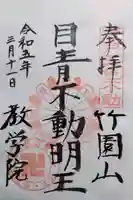 奉拝
竹園山
目青不動明王
令和五年
三月十一日
教学院